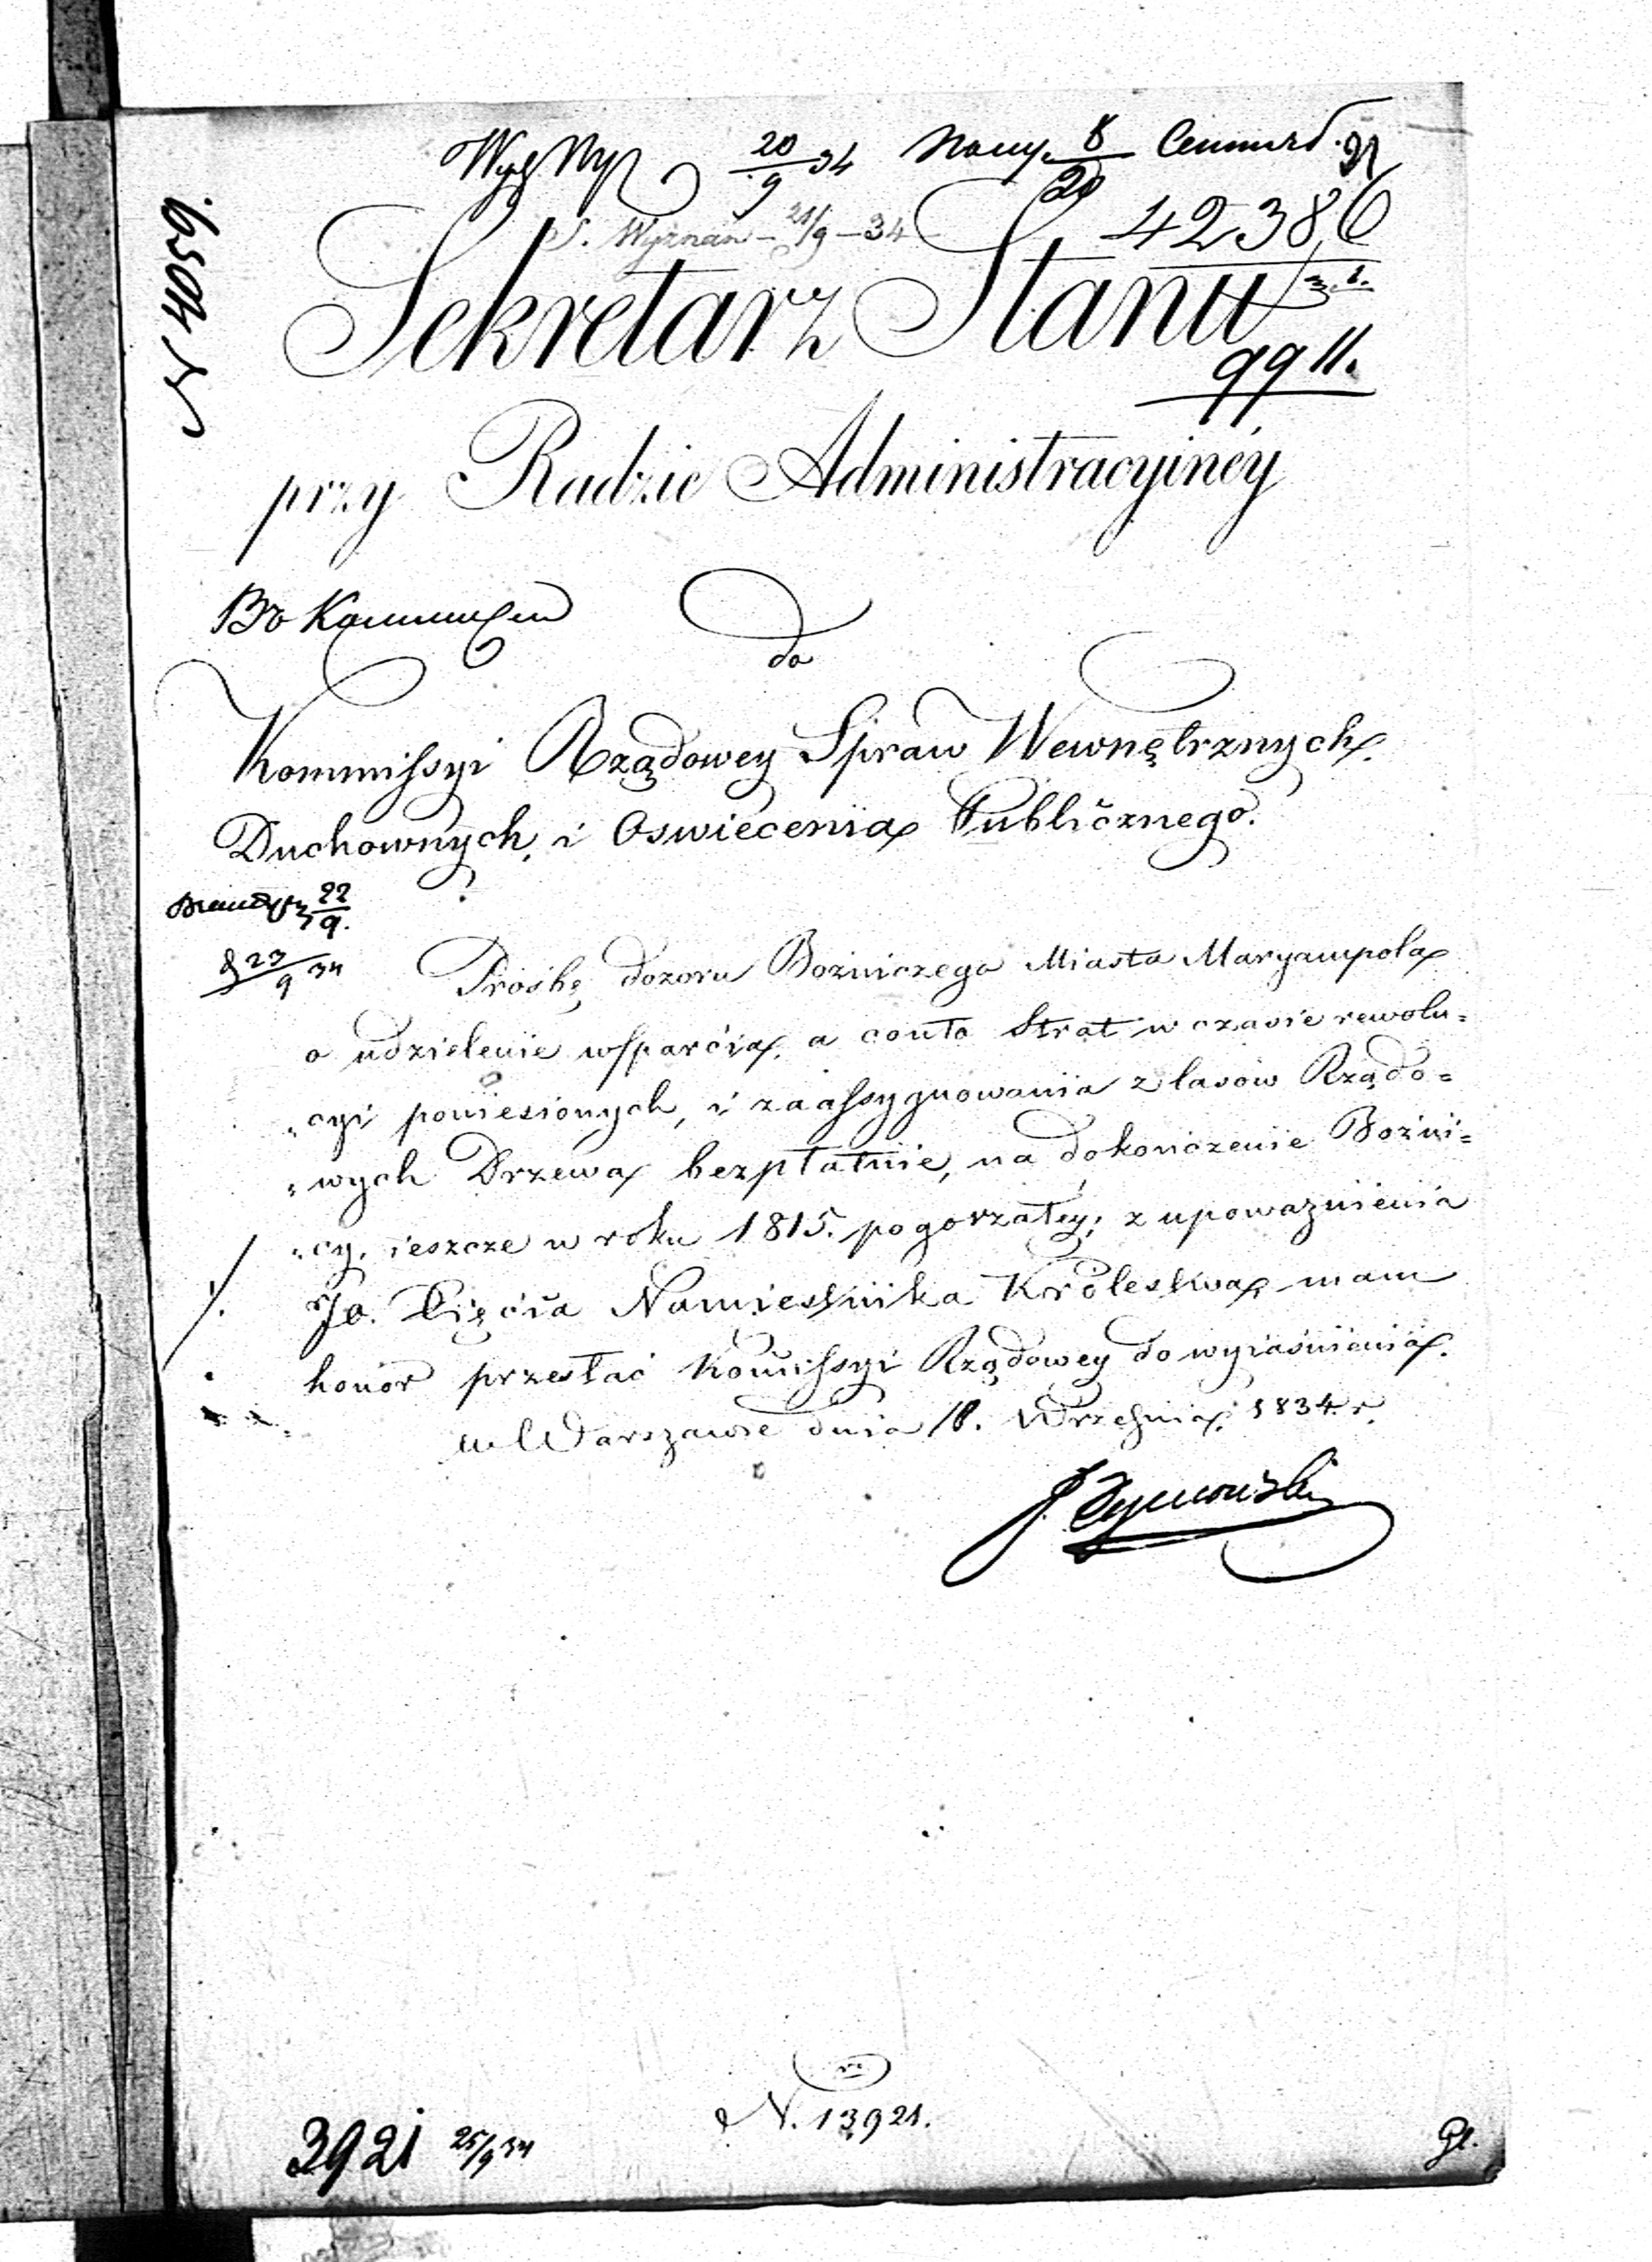 20/9 34
8/20
S. Wyznań - 21/9 - 34
42386
Sekretarz Stanu
9911.
przy Radzie Administracyinéy
do
Kommissyi Rządowey Spraw Wewnętrznych
Duchownych, i Oswiecenia Publicznego.
22/9.
23/9 34
Prośbę dozoru Bożniczego Miasta Maryampola
o udzielenie wsparcia, a conto Strat w czasie rewolu=
„cyi poniesionych, i zaassygnowania z lasów Rządo=
„wych Drzewa bezpłatnie, na dokończenie Bożni=
„cy, ieszcze w roku 1815. pogorzałey; z upoważnienia
JO. Xięcia Namiestnika Królestwa, mam
honor przesłać Kommissyi Rządowey do wyiaśnienia.
w Warszawie dnia 18. Września 1834 r.
N. 13921.
3921 25/9 34